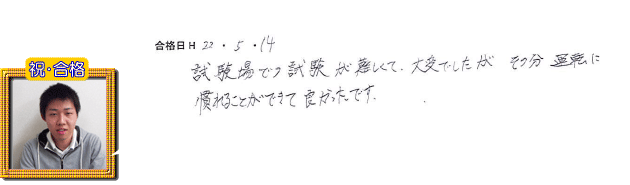 合格日 H 22 ・ 5 ・ 14
祝・合格
試験場での試験が難しくて、大変でしたが その分 運転に
慣れることができて 良かったです.